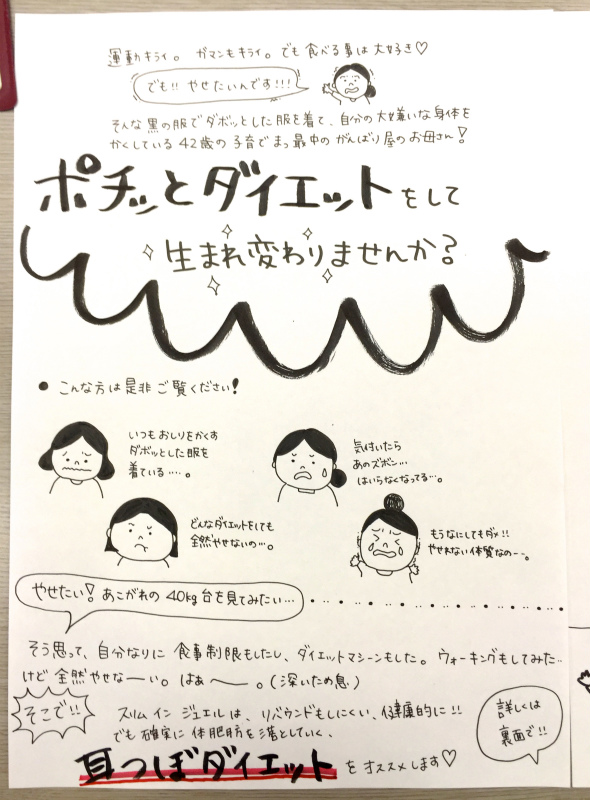 運動キライ。ガマンもキライ。でも食べる事は大好き♡
でも!! やせたいんです!!!
そんな黒の服でダボッとした服を着て、自分の大嫌いな身体を
かくしている42歳の子育てまっ最中のがんばり屋のお母さん!
ポチッとダイエットをして
生まれ変わりませんか?
● こんな方は是非ご覧ください!
いつもおしりをかくす
ダボッとした服を
着ている‥‥。
気付いたら
あのズボン…
はいらなくなってる…。
どんなダイエットをしても
全然やせないの…。
もうなにしてもダメ!!
やせれない体質なの--。
やせたい!あこがれの40kg台を見てみたい…
そう思って、自分なりに食事制限もしたし、ダイエットマシーンもした。ウォーキングもしてみた‥
けど全然やせなーい。はぁ〜。(深いため息)
そこで!!
スリムインジュエルは、リバウンドもしにくい、健康的に!!
でも確実に体脂肪を落としていく、
耳つぼダイエットをオススメします♡
詳しくは
裏面で!!